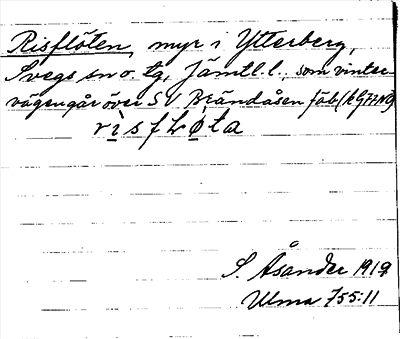 Risflöten, myr i Ytterberg,
Svegs sn o. tg, Jämtl. l., som vinter-
vägen går över SV Brändåsen fäb.
risfLøta
S. Åsander 1919
Ulma 755:11